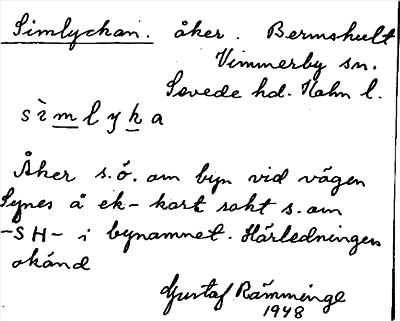 Simlyckan. åker. Bermshult
Vimmerby sn.
Sevede hd. Kalm l.
sìmlyka
Åker s.ö. om byn vid vägen
Synes å ek-kart rakt s. om
-SH- i bynamnet. Härledningen
okänd
Gustaf Rämminge
1948